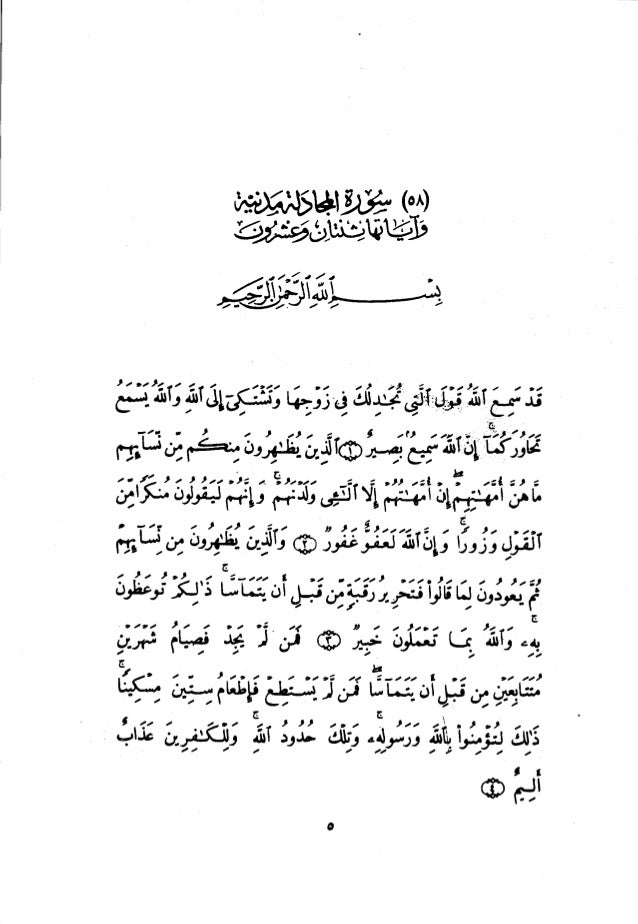 (٥٨) سُورَة المجَادلة مَدنيّة
وَآيَاتها ثنتَان وَعشرُون
بِسْمِ ٱللَّهِ ٱلرَّحْمَٰنِ ٱلرَّحِيمِ
قَدْ سَمِعَ ٱللَّهُ قَوْلَ ٱلَّتِي تُجَٰدِلُكَ فِي زَوْجِهَا وَتَشْتَكِيٓ إِلَى ٱللَّهِ وَٱللَّهُ يَسْمَعُ
تَحَاوُرَكُمَآۚ إِنَّ ٱللَّهَ سَمِيعُۢ بَصِيرٌ ﴿١﴾ ٱلَّذِينَ يُظَٰهِرُونَ مِنكُم مِّن نِّسَآئِهِم
مَّا هُنَّ أُمَّهَٰتِهِمْۖ إِنْ أُمَّهَٰتُهُمْ إِلَّا ٱلَّٰٓـِٔي وَلَدْنَهُمْۚ وَإِنَّهُمْ لَيَقُولُونَ مُنكَرًا مِّنَ
ٱلْقَوْلِ وَزُورًاۚ وَإِنَّ ٱللَّهَ لَعَفُوٌّ غَفُورٌ ﴿٢﴾ وَٱلَّذِينَ يُظَٰهِرُونَ مِن نِّسَآئِهِمْ
ثُمَّ يَعُودُونَ لِمَا قَالُوا۟ فَتَحْرِيرُ رَقَبَةٍ مِّن قَبْلِ أَن يَتَمَآسَّاۚ ذَٰلِكُمْ تُوعَظُونَ
بِهِۦۚ وَٱللَّهُ بِمَا تَعْمَلُونَ خَبِيرٌ ﴿٣﴾ فَمَن لَّمْ يَجِدْ فَصِيَامُ شَهْرَيْنِ
مُتَتَابِعَيْنِ مِن قَبْلِ أَن يَتَمَآسَّاۖ فَمَن لَّمْ يَسْتَطِعْ فَإِطْعَامُ سِتِّينَ مِسْكِينًاۚ
ذَٰلِكَ لِتُؤْمِنُوا۟ بِٱللَّهِ وَرَسُولِهِۦۚ وَتِلْكَ حُدُودُ ٱللَّهِۗ وَلِلْكَٰفِرِينَ عَذَابٌ
أَلِيمٌ ﴿٤﴾
٥